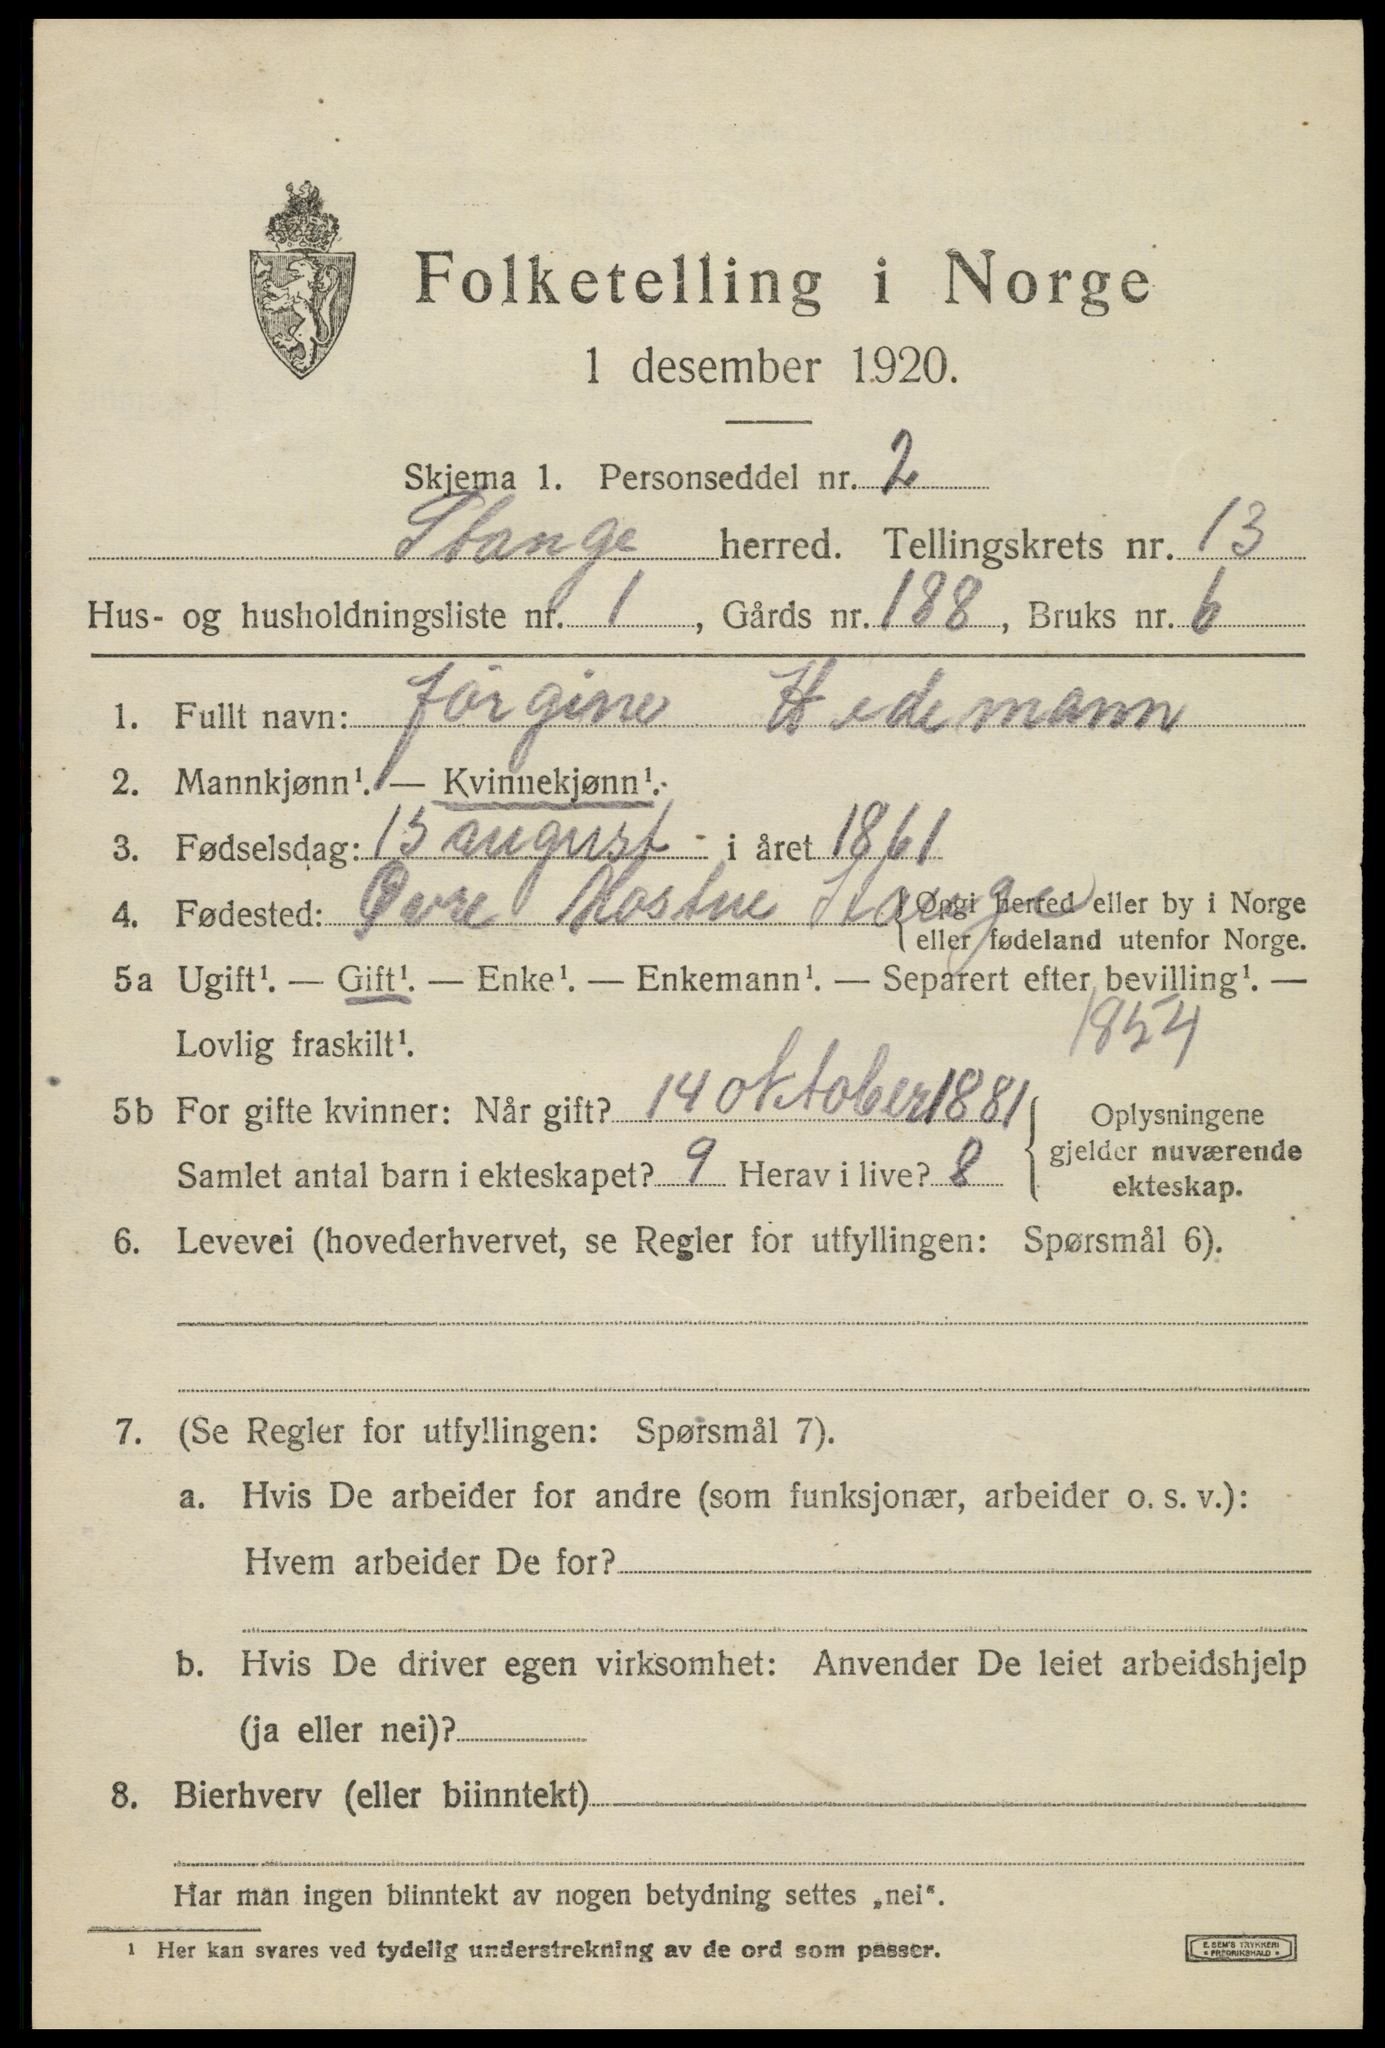 Folketelling i Norge
1 desember 1920.
Skjema 1. Personseddel nr. 2
Stange herred. Tellingskrets nr. 13
Hus- og husholdningsliste nr. 1, Gårds nr. 188, Bruks nr. 6
1. Fullt navn: Jörgine Hedemann
2. Mannkjønn¹. — Kvinnekjønn¹.
3. Fødselsdag: 15 august i året 1861
4. Fødested: Øvre Stange {Opgi herred eller by i Norge
eller fødeland utenfor Norge.
5a Ugift¹. — Gift¹. — Enke¹. — Enkemann¹. — Separert efter bevilling¹. —
Lovlig fraskilt¹. 1854
5b For gifte kvinner: Når gift? 14 oktober 1881
Samlet antal barn i ekteskapet? 9 Herav i live? 8
Oplysningene
gjelder nuværende
ekteskap.
6. Levevei (hovederhvervet, se Regler for utfyllingen: Spørsmål 6).
7. (Se Regler for utfyllingen: Spørsmål 7).
a. Hvis De arbeider for andre (som funksjonær, arbeider o. s. v.):
Hvem arbeider De for?
b. Hvis De driver egen virksomhet: Anvender De leiet arbeidshjelp
(ja eller nei)?
8. Bierhverv (eller biinntekt)
Har man ingen biinntekt av nogen betydning settes „nei“.
¹ Her kan svares ved tydelig understrekning av de ord som passer.
E. SEM'S TRYKKERI
FREDRIKSHALD